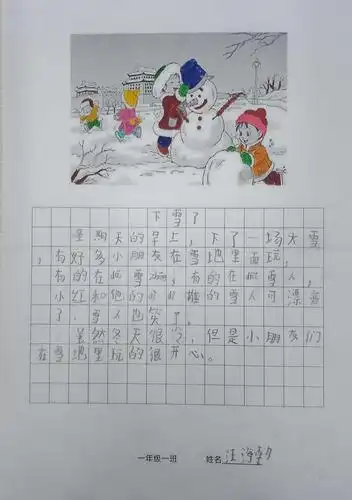 下雪了
星期天的早上，下了一场大雪
，有好多小朋友在雪地里面玩，
有的在抓雪，有的在抓雪人，
小红和他的 堆的雪人可漂亮
了，雪人也笑了。
虽然冬天很冷，但是小朋友们
在雪地里玩的很开心。
一年级一班 姓名 汪海